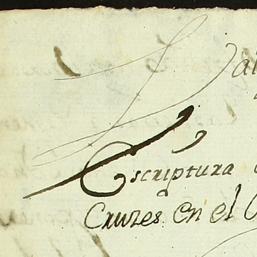 Escriptura
Cruzes en el